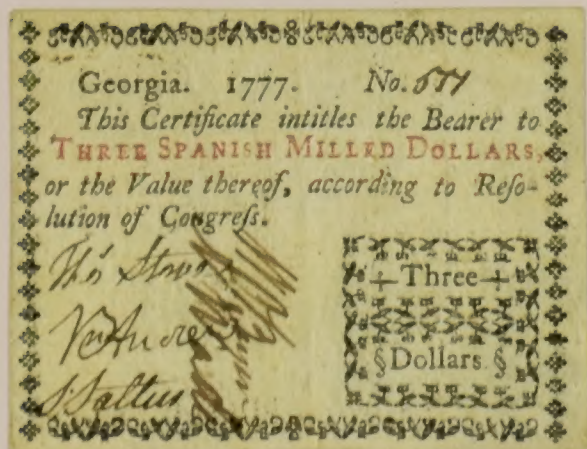 Georgia. 1777. No. 577
This Certificate intitles the Bearer to
THREE SPANISH MILLED DOLLARS,
or the Value thereof, according to Reſo-
lution of Congreſs.
Thos Stone
Wm Andrew
S. Saltus
Three
§Dollars §